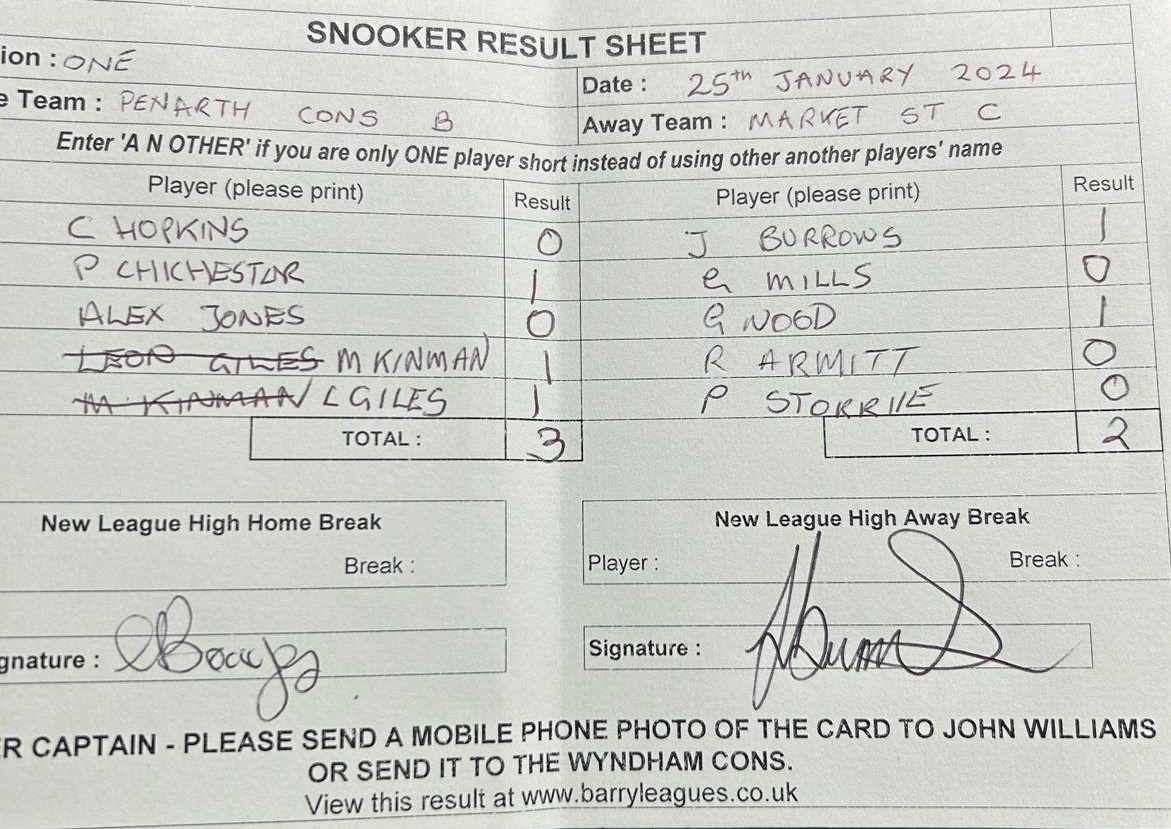 SNOOKER RESULT SHEET
ion : ONE
Date : 25th JANUARY 2024
e Team : PENARTH CONS B
Away Team : MARKET ST C
Enter 'A N OTHER' if you are only ONE player short instead of using other another players' name
Player (please print) Result Player (please print) Result
C HOPKINS 0 J BURROWS 1
P CHICHESTOR 1 G MILLS 0
ALEX JONES 0 G WOOD 1
LEON GILES M KINMAN 1 R ARMITT 0
M KINMAN L GILES 1 P STORRIE 0
TOTAL : 3 TOTAL : 2
New League High Home Break New League High Away Break
Break : Player : Break :
gnature : Signature :
R CAPTAIN - PLEASE SEND A MOBILE PHONE PHOTO OF THE CARD TO JOHN WILLIAMS
OR SEND IT TO THE WYNDHAM CONS.
View this result at www.barryleagues.co.uk